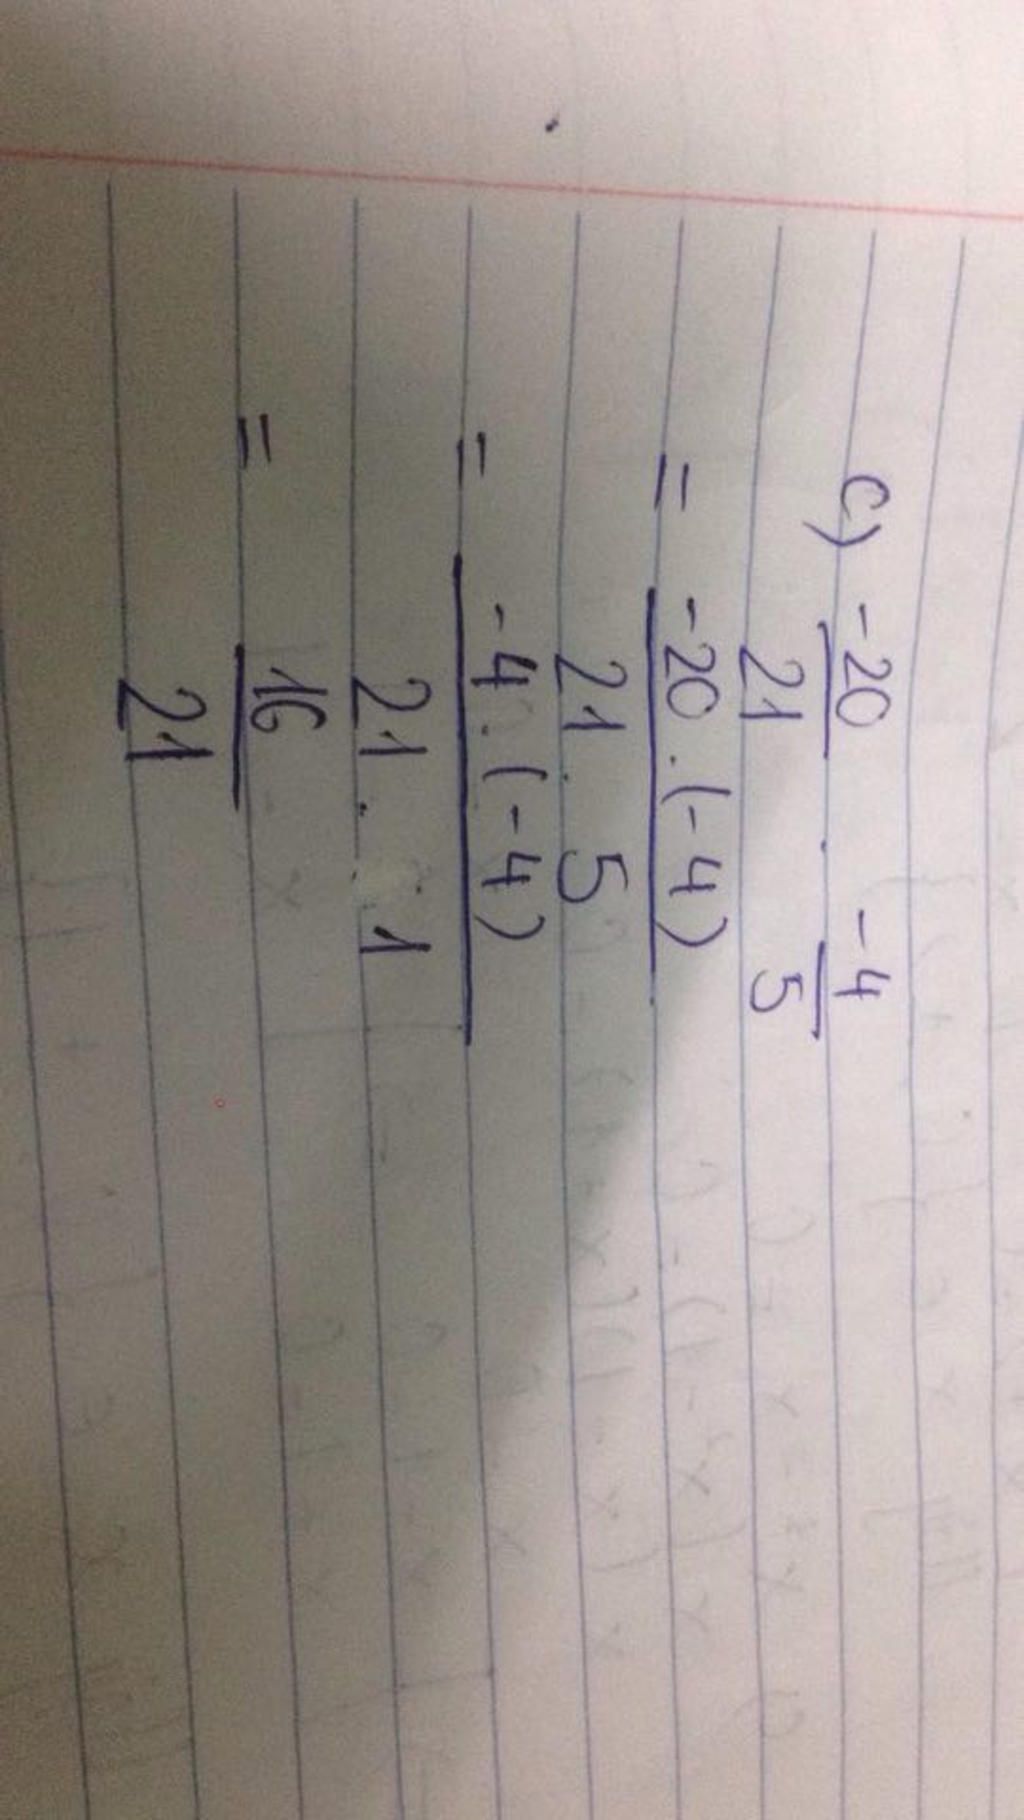 c) -20/21 . -4/5
= -20 . (-4) / 21 . 5
= -4 . (-4) / 21 . 1
= 16/21